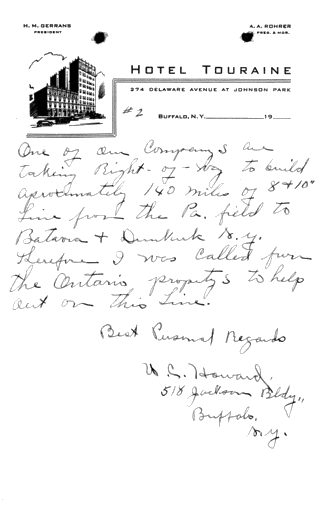 H. M. GERRANS
PRESIDENT
A. A. ROHRER
PRES. & MGR.
HOTEL TOURAINE
274 DELAWARE AVENUE AT JOHNSON PARK
#2
BUFFALO, N.Y. 19
One of our Companys are
taking Right-of-way to build
aproximately 140 miles of 8 & 10"
Line from the Pa. field to
Batavia & Dunkirk N.y.
Therefore I was called from
the Ontario propertys to help
out on this Line.
Best Personal Regards
Howard.
518 Jackson Bldg.,
Buffalo.
N.y.